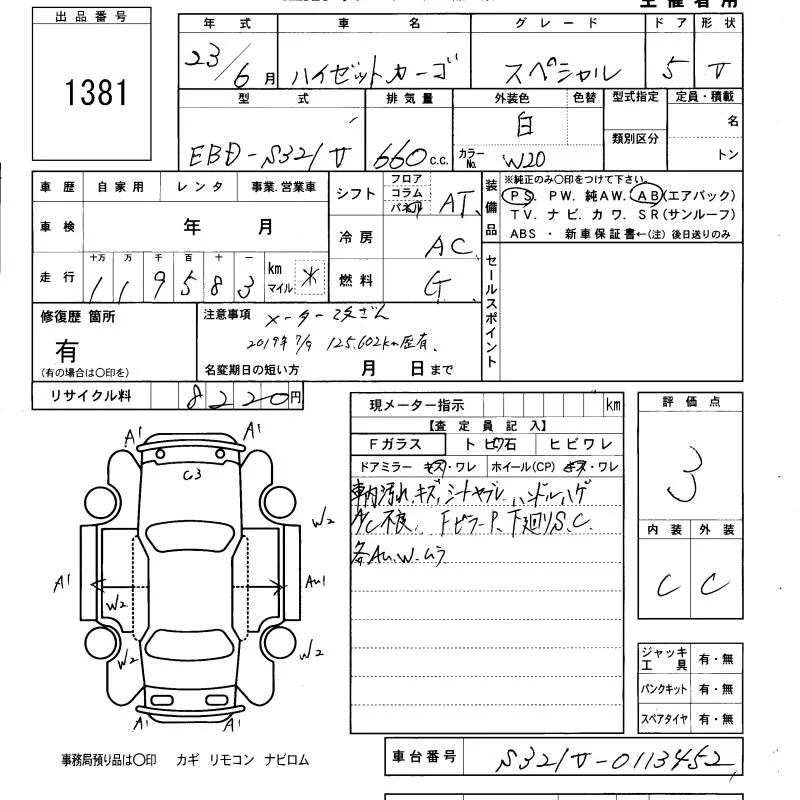 主催者用
出品番号
1381
年式 車名 グレード ドア 形状
23/6月 ハイゼットカーゴ スペシャル 5 V
型式 排気量 外装色 色替 型式指定 定員・積載
EBD-S321V 660c.c. 白 名
カラーNo. W20 類別区分 トン
車歴 自家用 レンタ 事業.営業車
車検 年 月
走行 十万 万 千 百 十 一
1 1 9 5 8 3 km マイル *
シフト フロア コラム パネル AT
冷房 AC
燃料 G
装備品
※純正のみ○印をつけて下さい。
PS. PW. 純AW. AB(エアバック)
TV. ナビ. カワ. SR(サンルーフ)
ABS ・ 新車保証書←(注) 後日送りのみ
セールスポイント
修復歴 箇所
有
(有の場合は○印を)
注意事項 メーター改ざん
2019年7/9 125.602km歴有.
名変期日の短い方 月 日まで
リサイクル料 8220円
現メーター指示 km
【査定員記入】
Fガラス トビ石 ヒビワレ
ドアミラー キズ・ワレ ホイール(CP) キズ・ワレ
車内汚れ.キズ.シートヤブレ.ハンドルハゲ
A/C不良. FピラーP.下廻りS.C.
各AU.W.ムラ
評価点
3
内装 外装
C C
ジャッキ工具 有・無
パンクキット 有・無
スペアタイヤ 有・無
A1 A1
C3
W2
A1 AU1
W2
W2 W2
A1 A1
事務局預り品は○印 カギ リモコン ナビロム
車台番号 S321V-0113452